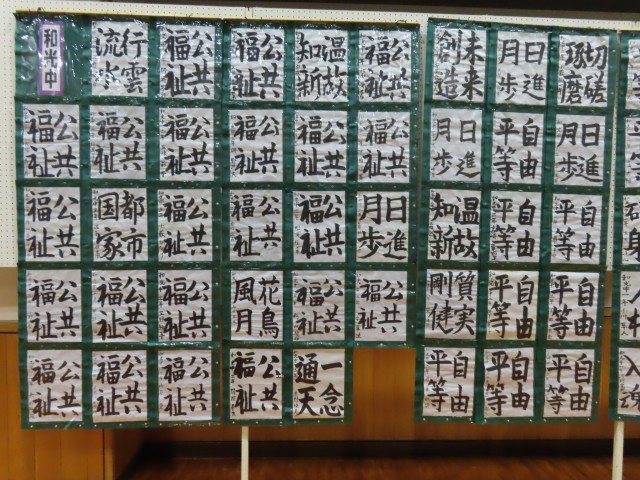 和光中
行雲流水
公共福祉
公共福祉
温故知新
公共福祉
公共福祉
公共福祉
公共福祉
公共福祉
公共福祉
公共福祉
公共福祉
都市国家
公共福祉
公共福祉
公共福祉
日進月歩
公共福祉
公共福祉
公共福祉
花鳥風月
公共福祉
公共福祉
公共福祉
公共福祉
公共福祉
公共福祉
一念通天
未来創造
日進月歩
切磋琢磨
日進月歩
自由平等
日進月歩
温故知新
自由平等
自由平等
質実剛健
自由平等
自由平等
自由平等
自由平等
自由平等
入魂